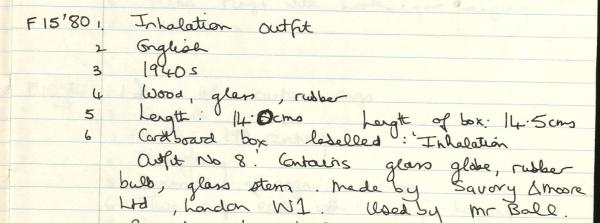 F15'80 1. Inhalation outfit
2 English
3 1940s
4 Wood, glass, rubber
5 Length: 14.0cms Length of box: 14.5cms
6 Cardboard box labelled: 'Inhalation
Outfit No 8'. Contains glass globe, rubber
bulb, glass stem. Made by Savory & Moore
Ltd, London W1. Used by Mr Ball.